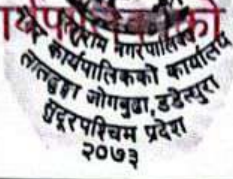 र्यपालिकाको
नगरपालिका
कार्यपालिकको कार्यालय
जोगबुढा, डडेल्धुरा
सुदूरपश्चिम प्रदेश
२०७३